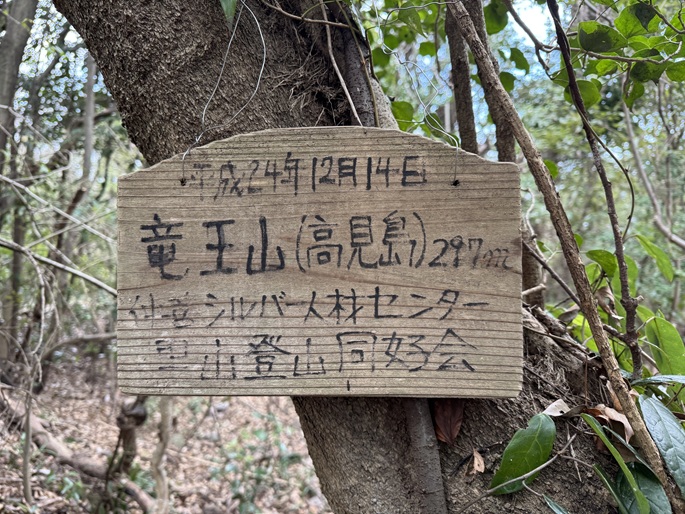 平成24年12月14日
竜王山(高見島)297m
仲善シルバー人材センター
里山登山同好会